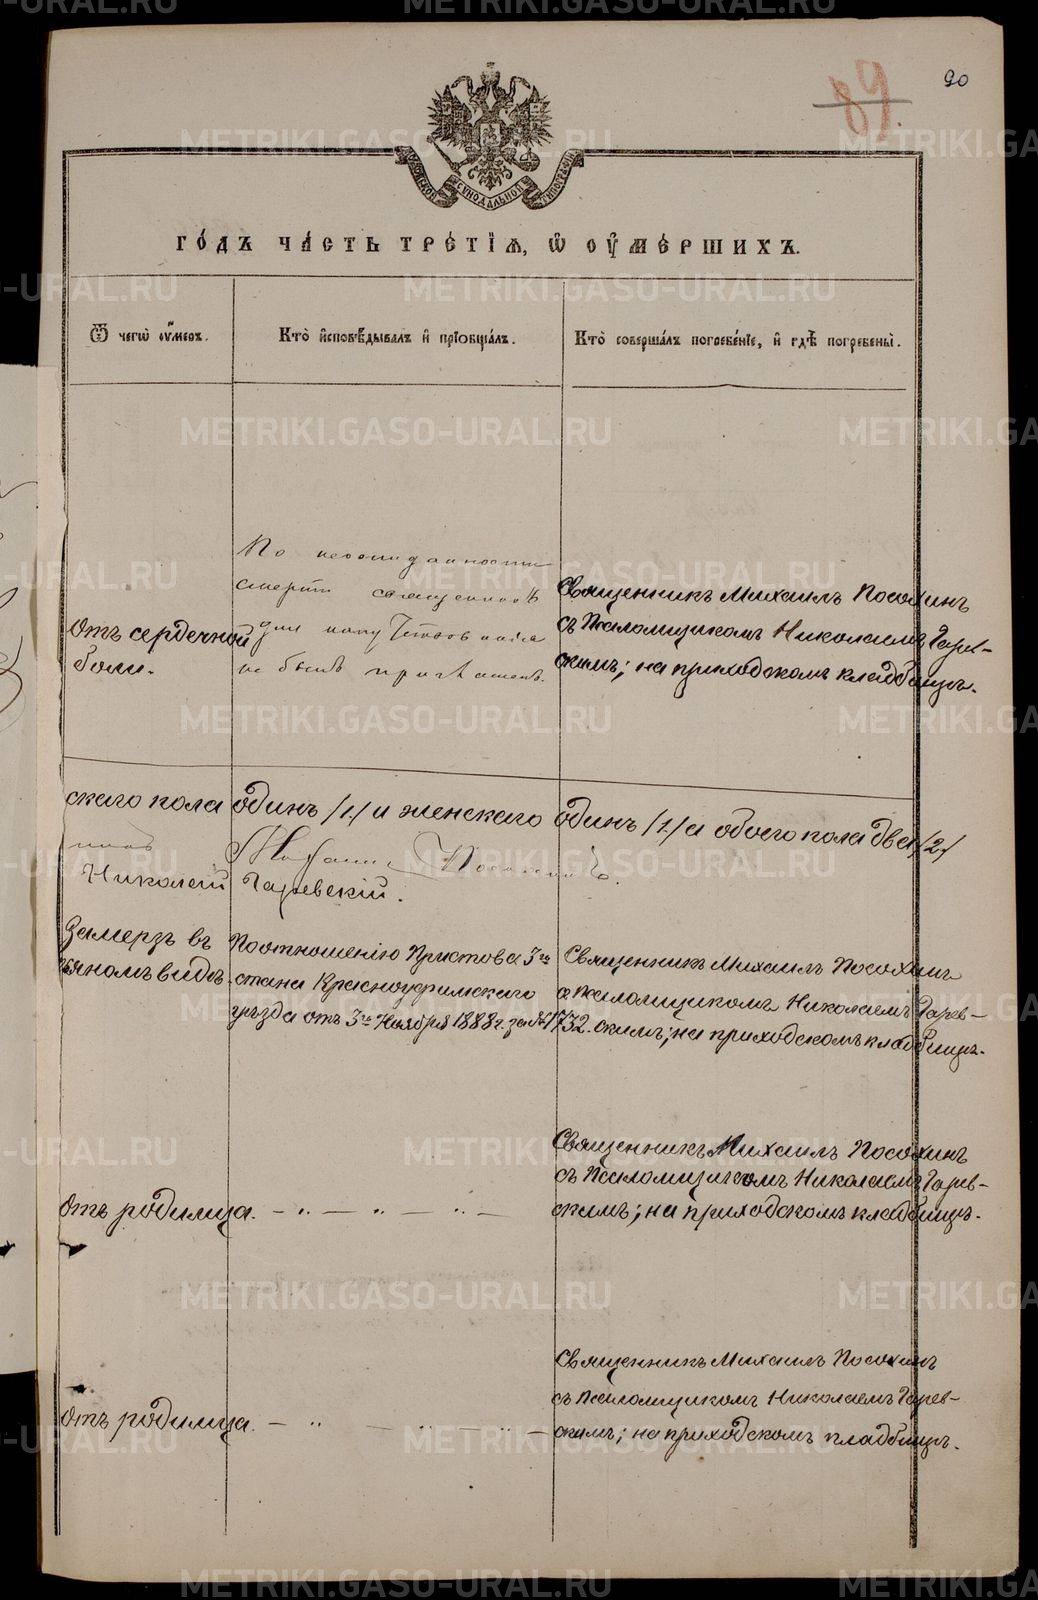 METRIKI.GASO-URAL.RU
89.
90
МОСКОВСКОЙ СѴНОДАЛЬНОЙ ТИПОГРАФІИ
ГО́ДЪ ЧА́СТЬ ТРЕ́ТІѦ, Ѡ҆ ОУ҆МЕ́РШИХЪ.
Ѿ чегѡ̀ оу҆́меръ.
Кто̀ и҆сповѣ́дывалъ и҆ прїѡбща́лъ.
Кто̀ соверша́лъ погребе́нїе, и҆ гдѣ̀ погребены̀.
Отъ сердечной
боли.
По неожиданности
смерти священникъ
для напутствования
не былъ приглашенъ.
Священникъ Михаилъ Посохинъ
съ Псаломщикомъ Николаемъ Гарев-
скимъ; на приходскомъ кладбищѣ.
скаго пола одинъ /1/ и женскаго одинъ /1/ а обоего пола два /2/
Николай Гаревскій.
Замерз въ
пьяномъ видѣ.
По отношенію Пристава 3го
стана Красноуфимскаго
уѣзда отъ 3го Ноября 1888 г. за № 1732.
Священникъ Михаилъ Посохинъ
с Псаломщикомъ Николаемъ Гарев-
скимъ; на приходскомъ кладбищѣ.
Отъ родимца. — „ — „ — „ —
Священникъ Михаилъ Посохинъ
съ Псаломщикомъ Николаемъ Гарев-
скимъ; на приходскомъ кладбищѣ.
Отъ родимца. — „ — „ — „ —
Священникъ Михаилъ Посохинъ
съ Псаломщикомъ Николаемъ Гарев-
скимъ; на приходскомъ кладбищѣ.